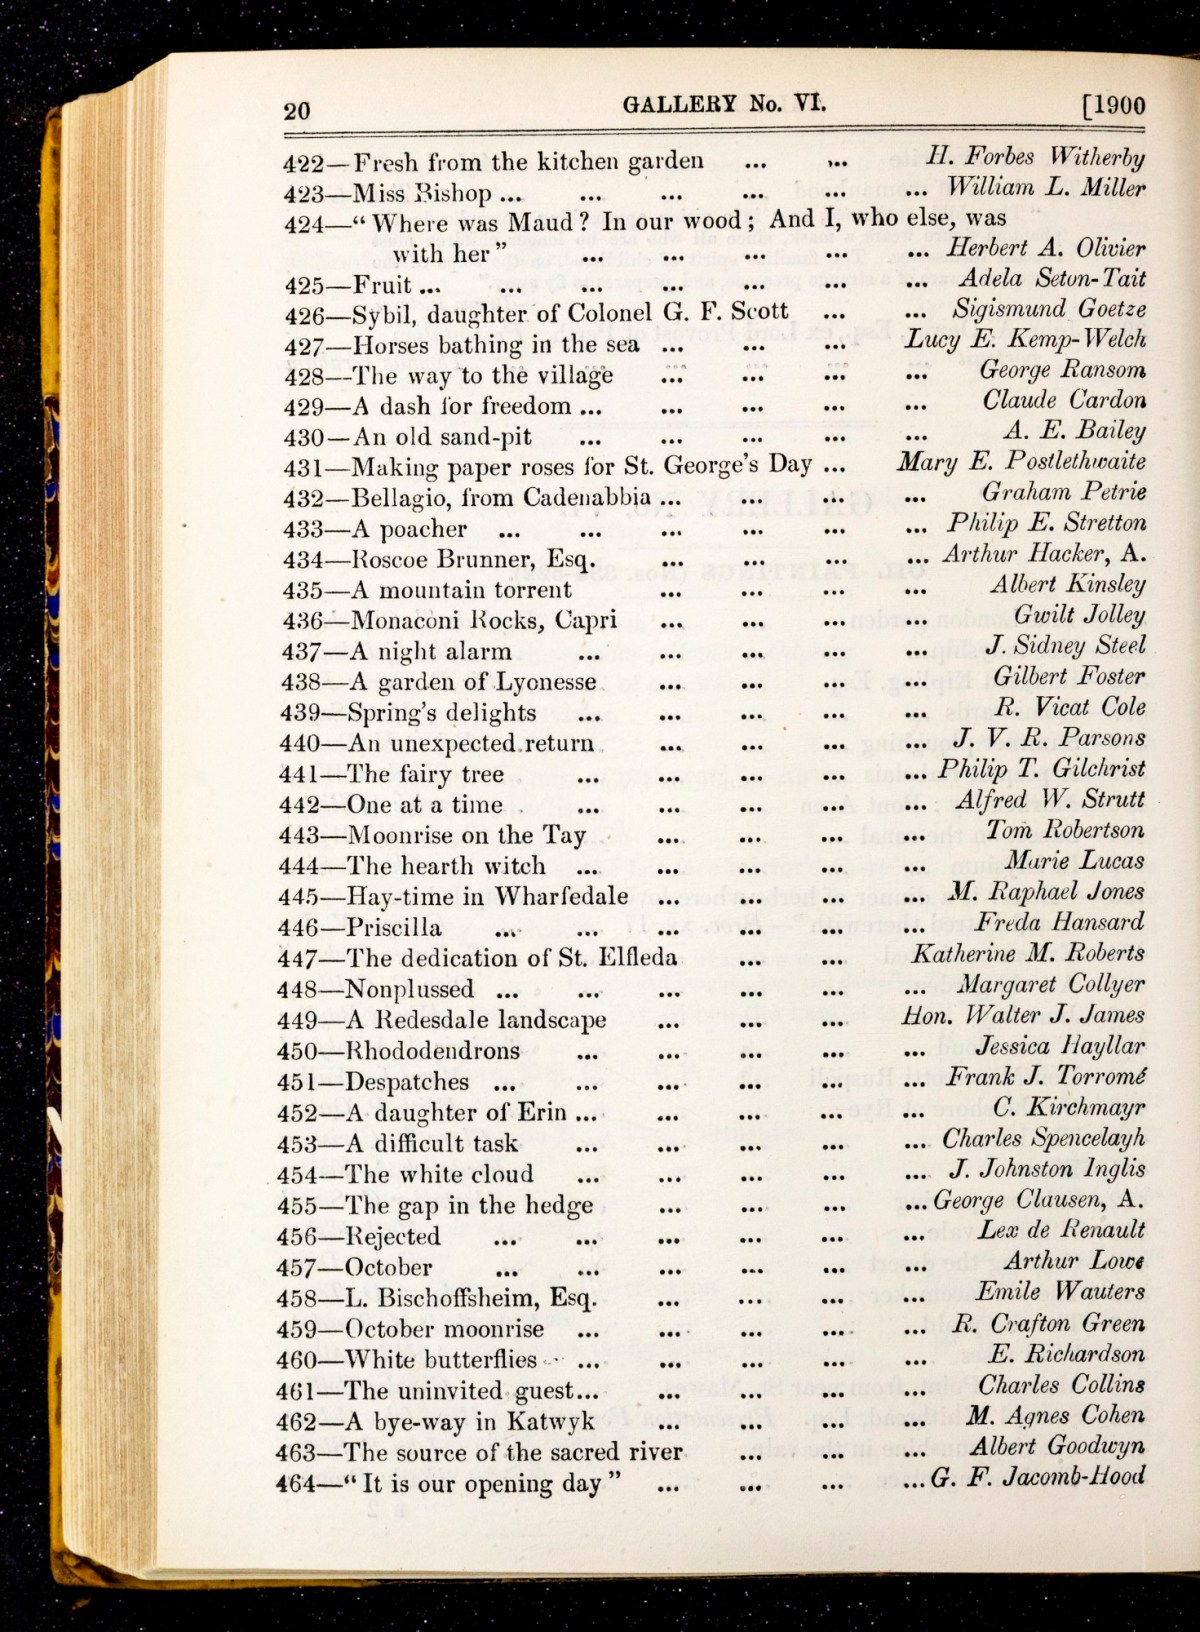 20 GALLERY No. VI. [1900
422—Fresh from the kitchen garden ... ... H. Forbes Witherby
423—Miss Bishop ... ... ... ... ... ... William L. Miller
424—“ Where was Maud ? In our wood ; And I, who else, was
with her ” ... ... ... ... ... Herbert A. Olivier
425—Fruit ... ... ... ... ... ... ... Adela Seton-Tait
426—Sybil, daughter of Colonel G. F. Scott ... ... Sigismund Goetze
427—Horses bathing in the sea ... ... ... Lucy E. Kemp-Welch
428—The way to the village ... ... ... ... George Ransom
429—A dash for freedom ... ... ... ... ... Claude Cardon
430—An old sand-pit ... ... ... ... ... A. E. Bailey
431—Making paper roses for St. George’s Day ... Mary E. Postlethwaite
432—Bellagio, from Cadenabbia ... ... ... ... Graham Petrie
433—A poacher ... ... ... ... ... ... Philip E. Stretton
434—Roscoe Brunner, Esq. ... ... ... ... Arthur Hacker, A.
435—A mountain torrent ... ... ... ... Albert Kinsley
436—Monaconi Rocks, Capri ... ... ... ... Gwilt Jolley
437—A night alarm ... ... ... ... ... J. Sidney Steel
438—A garden of Lyonesse ... ... ... ... Gilbert Foster
439—Spring’s delights ... ... ... ... ... R. Vicat Cole
440—An unexpected return ... ... ... ... J. V. R. Parsons
441—The fairy tree ... ... ... ... ... Philip T. Gilchrist
442—One at a time ... ... ... ... ... Alfred W. Strutt
443—Moonrise on the Tay ... ... ... ... Tom Robertson
444—The hearth witch ... ... ... ... ... Marie Lucas
445—Hay-time in Wharfedale ... ... ... ... M. Raphael Jones
446—Priscilla ... ... ... ... ... ... Freda Hansard
447—The dedication of St. Elfleda ... ... Katherine M. Roberts
448—Nonplussed ... ... ... ... ... ... Margaret Collyer
449—A Redesdale landscape ... ... ... Hon. Walter J. James
450—Rhododendrons ... ... ... ... ... Jessica Hayllar
451—Despatches ... ... ... ... ... ... Frank J. Torromé
452—A daughter of Erin ... ... ... ... ... C. Kirchmayr
453—A difficult task ... ... ... ... ... Charles Spencelayh
454—The white cloud ... ... ... ... ... J. Johnston Inglis
455—The gap in the hedge ... ... ... ... George Clausen, A.
456—Rejected ... ... ... ... ... ... Lex de Renault
457—October ... ... ... ... ... ... Arthur Lowe
458—L. Bischoffsheim, Esq. ... ... ... ... Emile Wauters
459—October moonrise ... ... ... ... ... R. Crafton Green
460—White butterflies ... ... ... ... ... E. Richardson
461—The uninvited guest... ... ... ... ... Charles Collins
462—A bye-way in Katwyk ... ... ... ... M. Agnes Cohen
463—The source of the sacred river ... ... ... Albert Goodwyn
464—“ It is our opening day ” ... ... ... ... G. F. Jacomb-Hood